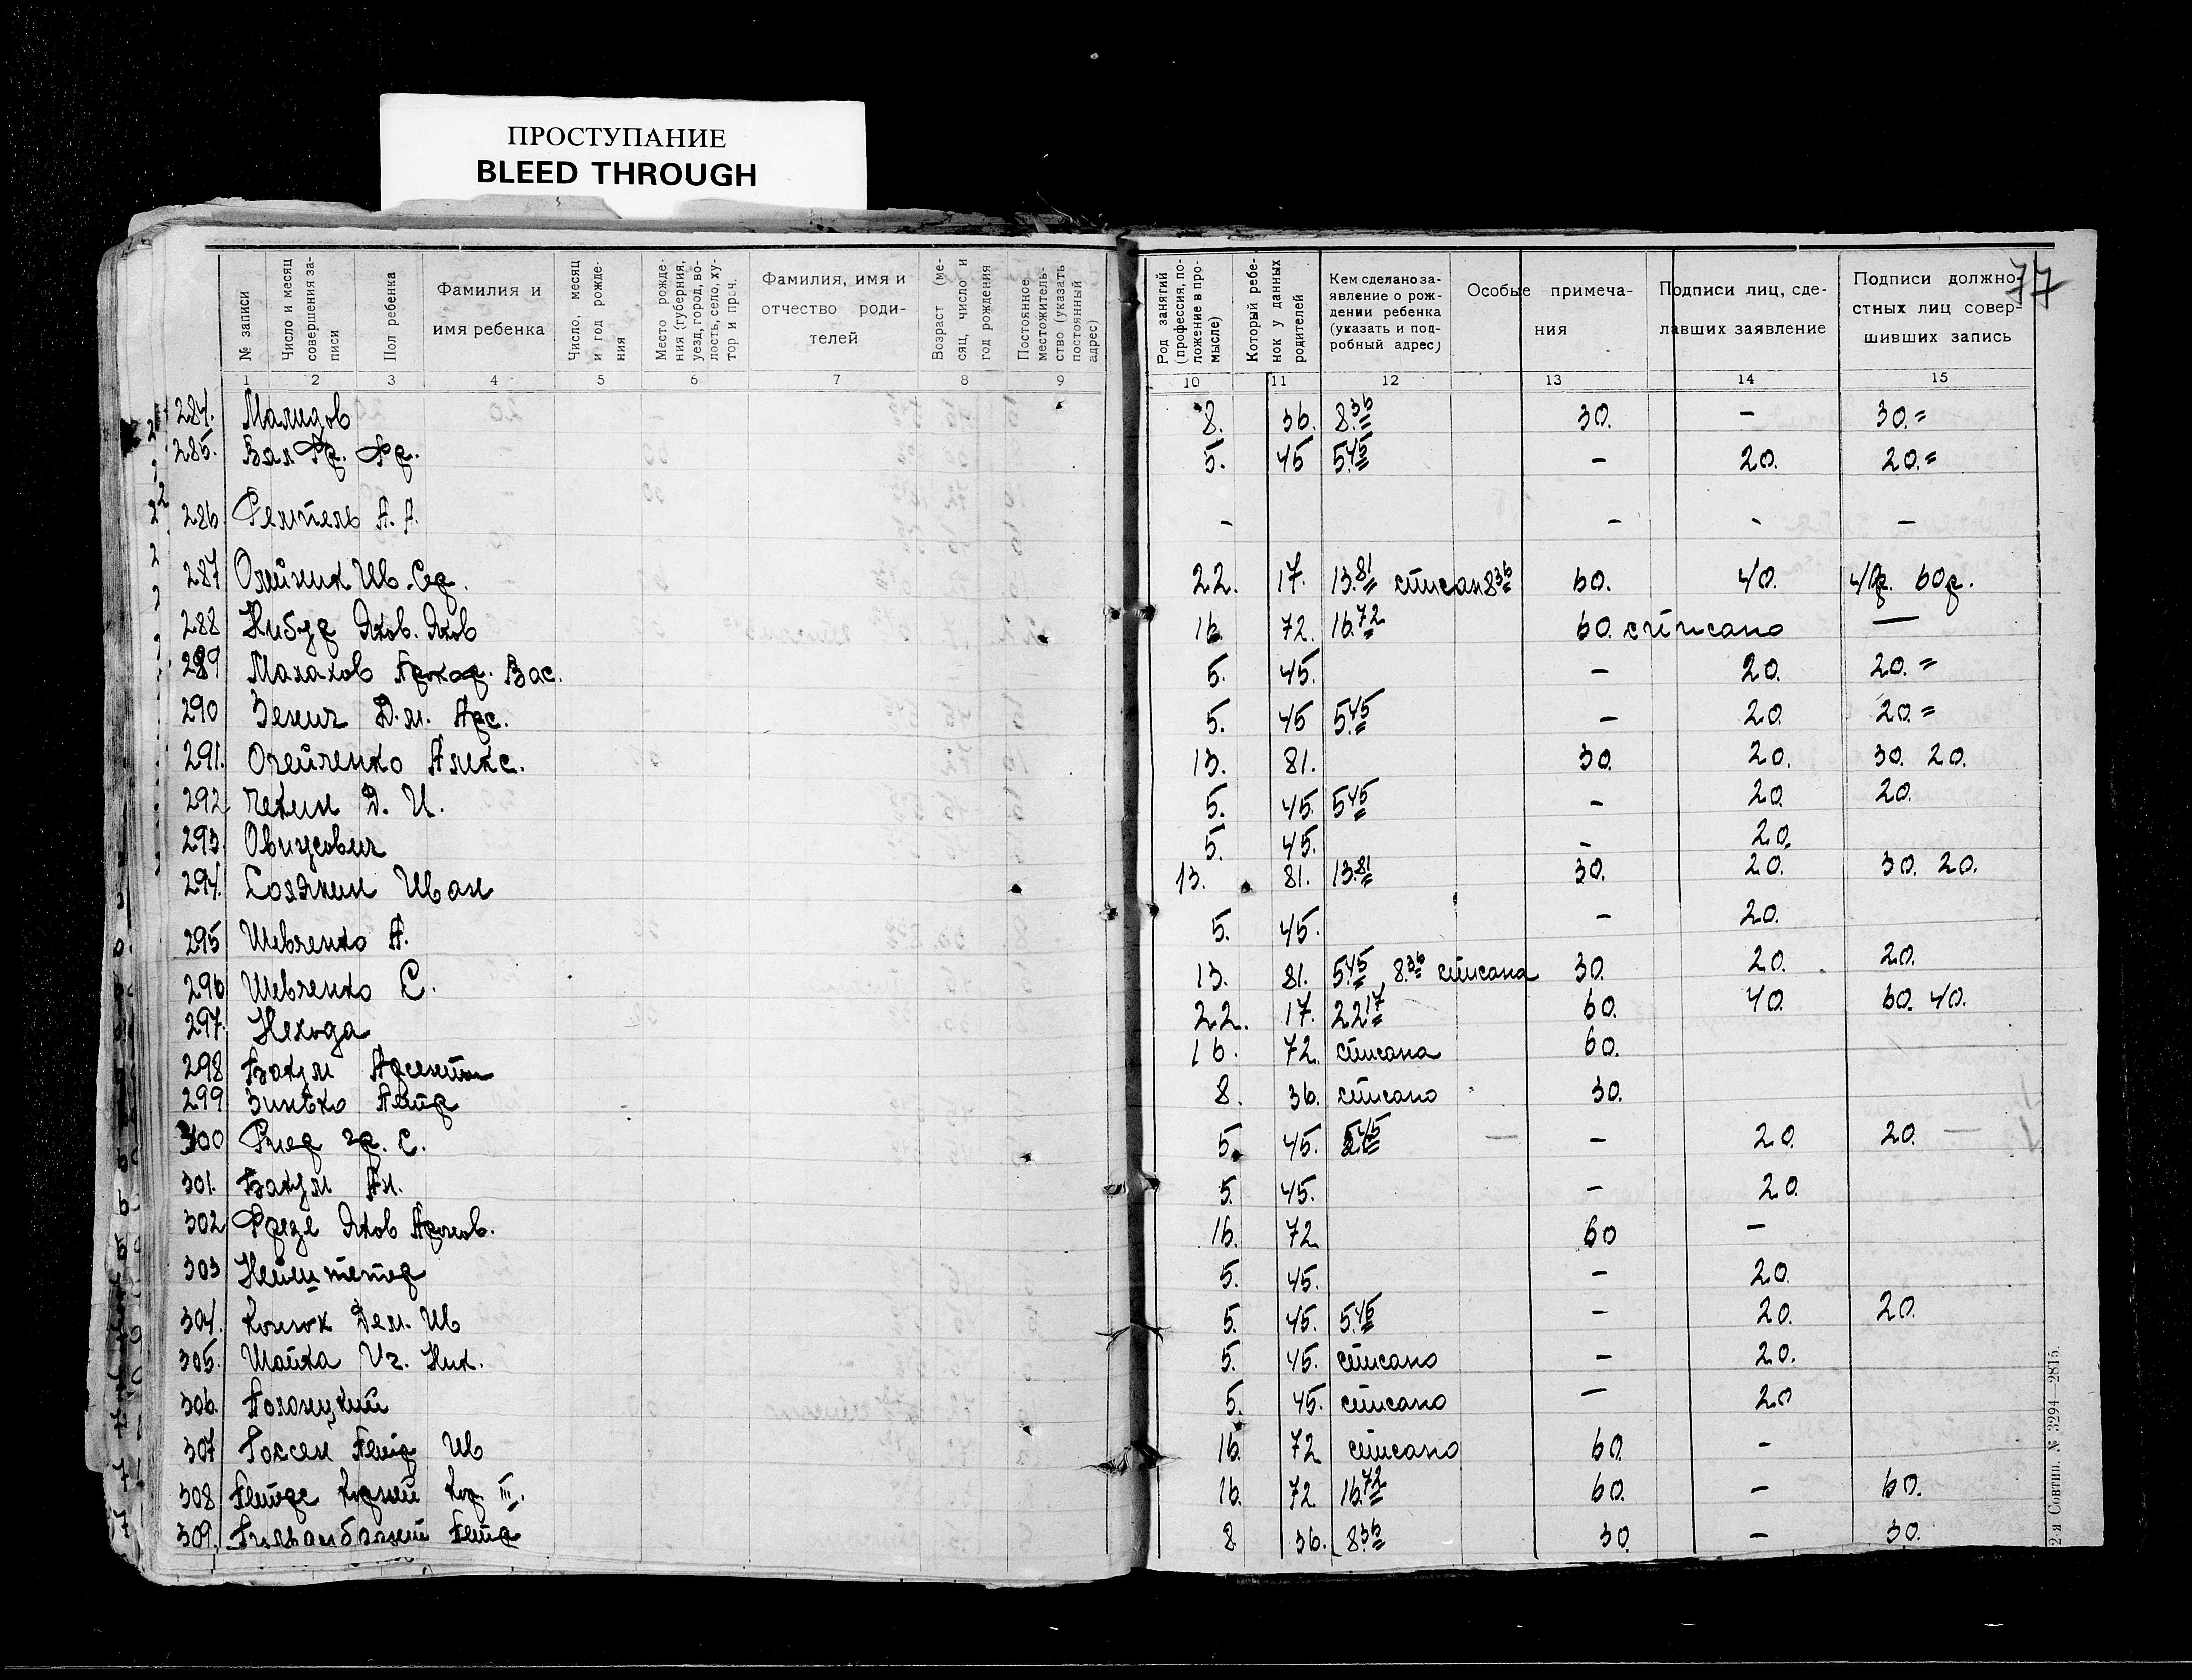 ПРОСТУПАНИЕ
BLEED THROUGH
77
№ записи
Число и месяц совершения записи
Пол ребенка
Фамилия и
имя ребенка
Число, месяц и год рождения
Место рождения (губерния, уезд, город, волость, село, хутор и проч.
Фамилия, имя и
отчество роди-
телей
Возраст (месяц, число и год рождения
Постоянное местожительство (указать постоянный адрес)
Род занятий (профессия, положение в промысле)
Который ребенок у данных родителей
Кем сделано за-
явление о рож-
дении ребенка
(указать и под-
робный адрес)
Особые примеча-
ния
Подписи лиц, сде-
лавших заявление
Подписи должно-
стных лиц совер-
шивших запись
1 2 3 4 5 6 7 8 9 10 11 12 13 14 15
284. 8. 36. 8.36 30. – 30.=
285. 5. 45 5.45 – 20. 20.=
286 А. А. – – – –
287 Олейник Ив. 22. 17. 13.81 списан 8.36 60. 40. 40р. 60р.
288 Яков. Яков 16 72. 16.72 60. списано —
289 Малахов Вас. 5. 45. – 20. 20.=
290 5. 45 5.45 – 20. 20.=
291. Алекс. 13. 81. 30. 20. 30. 20.
292 Чекин Д. И. 5. 45. 5.45 – 20. 20.
293. 5. 45. – 20.
294. Иван 13. 81. 13.81 30. 20. 30. 20.
295 Шевченко А. 5. 45. – 20.
296 Шевченко С. 13. 81. 5.45 8.36 списана 30. 20. 20.
297. Нехода 22. 17. 22.17 60. 40. 60. 40.
298 Бакум 16. 72. списана 60.
299 Зинько Петр 8. 36. списано 30.
300 5. 45. 5.45 – 20. 20. —
301. Бакум Ан. 5. 45. – 20.
302 Яков 16. 72 60 –
303 5. 45. – 20.
304. Дем. Ив 5. 45. 5.45 – 20. 20.
305. Шайка Ник. 5. 45. списано – 20.
306. Полонецкий 5. 45. списано – 20
307 Петр Ив 16. 72 списано 60. –
308 Корней Кор. III. 16. 72 16.72 60. – 60.
309. Петр 8 36. 8.36 30. – 30.
2-я Совтип. № 3294—2815.